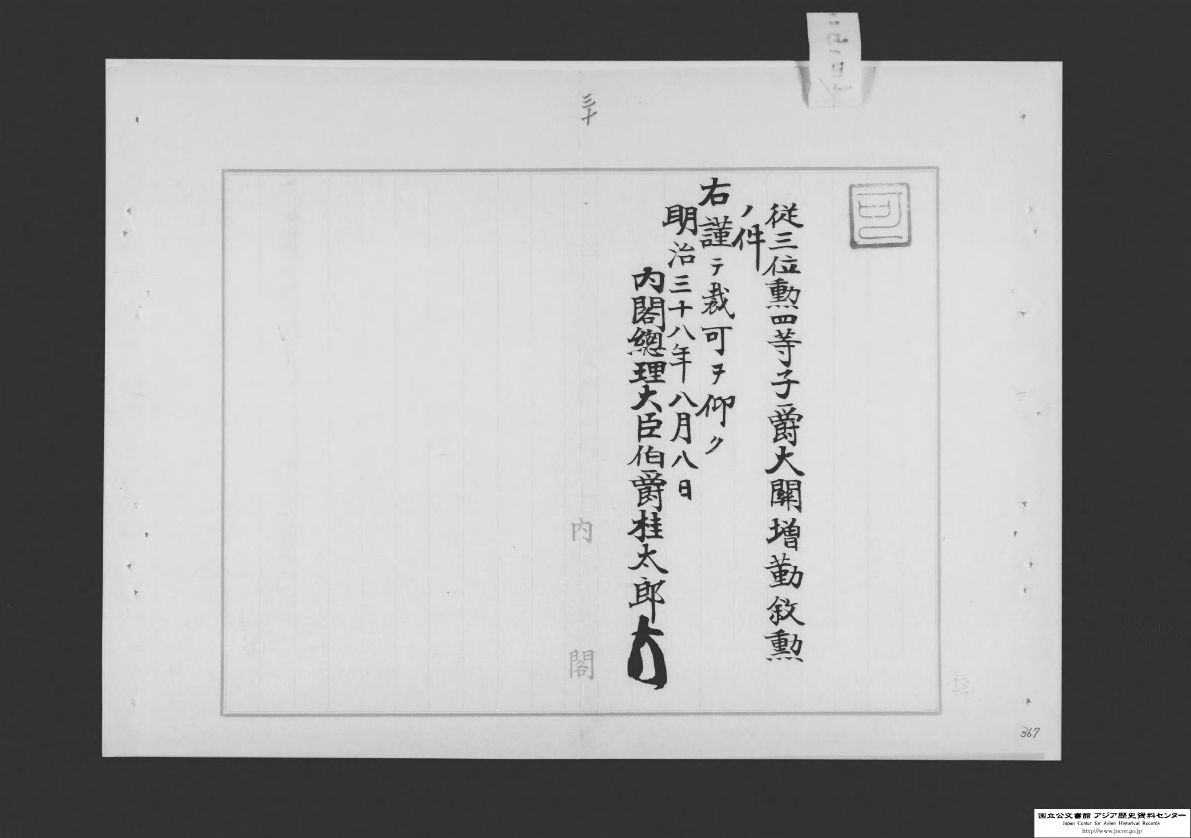 三十
可
従三位勲四等子爵大關増勤敘勲
ノ件
右謹テ裁可ヲ仰ク
明治三十八年八月八日
内閣總理大臣伯爵桂太郎
内閣
367
国立公文書館 アジア歴史資料センター
Japan Center for Asian Historical Records
http://www.jacar.go.jp